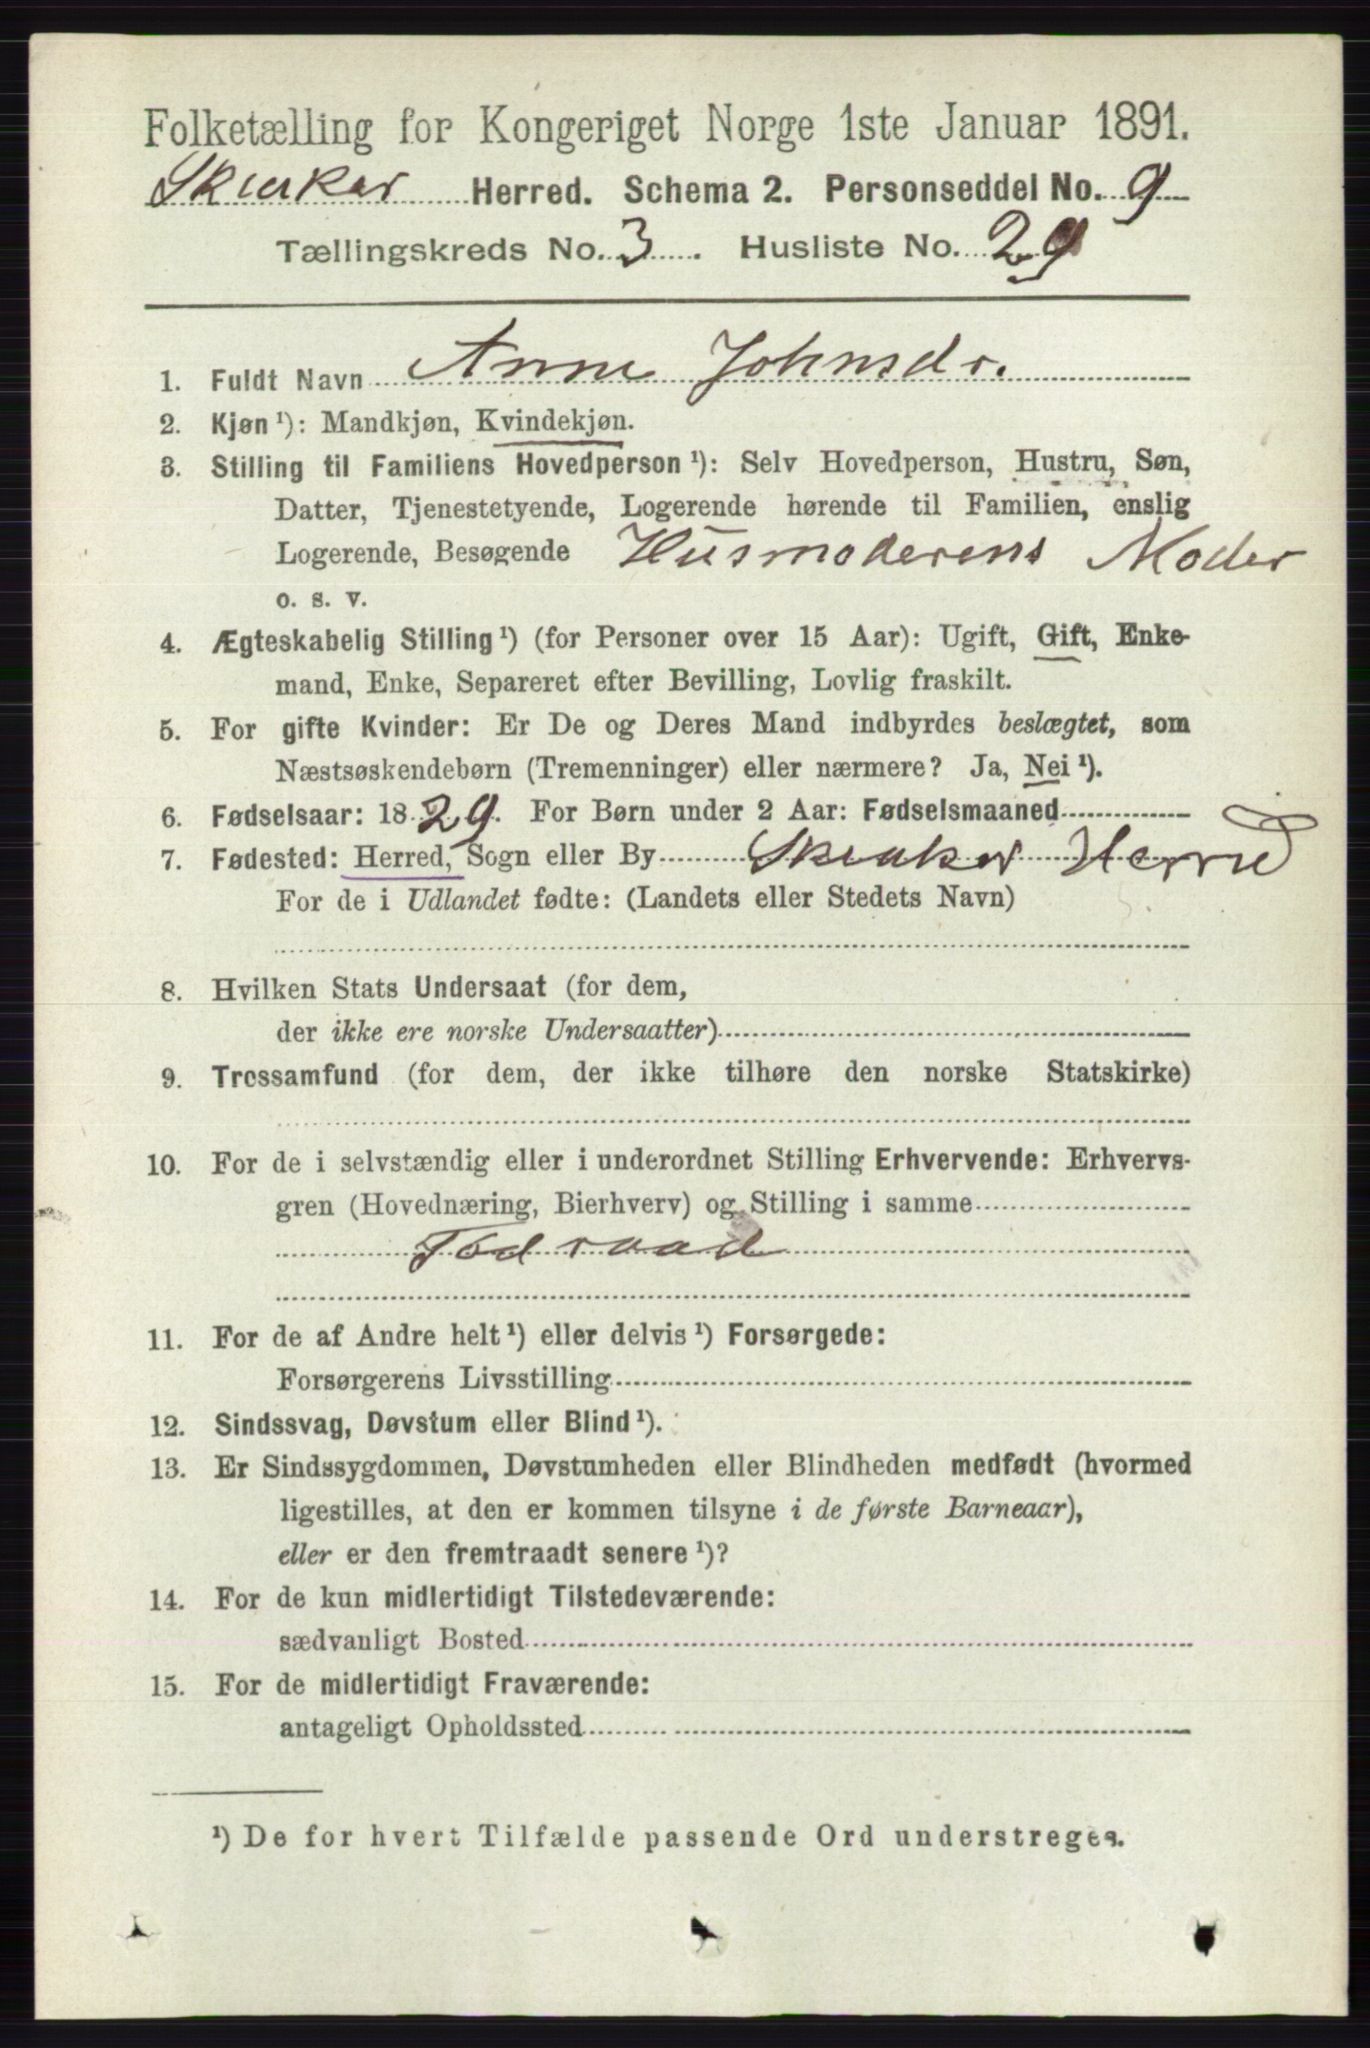 Folketælling for Kongeriget Norge 1ste Januar 1891.
Skiaker Herred. Schema 2. Personseddel No. 9
Tællingskreds No. 3. Husliste No. 29
1. Fuldt Navn Anne Johnsdr.
2. Kjøn ¹): Mandkjøn, Kvindekjøn.
3. Stilling til Familiens Hovedperson ¹): Selv Hovedperson, Hustru, Søn,
Datter, Tjenestetyende, Logerende hørende til Familien, enslig
Logerende, Besøgende Husmoderens Moder
o. s. v.
4. Ægteskabelig Stilling ¹) (for Personer over 15 Aar): Ugift, Gift, Enke-
mand, Enke, Separeret efter Bevilling, Lovlig fraskilt.
5. For gifte Kvinder: Er De og Deres Mand indbyrdes beslægtet, som
Næstsøskendebørn (Tremenninger) eller nærmere? Ja, Nei ¹).
6. Fødselsaar: 1829. For Børn under 2 Aar: Fødselsmaaned
7. Fødested: Herred, Sogn eller By Skiaker Herred
For de i Udlandet fødte: (Landets eller Stedets Navn)
8. Hvilken Stats Undersaat (for dem,
der ikke ere norske Undersaatter)
9. Trossamfund (for dem, der ikke tilhøre den norske Statskirke)
10. For de i selvstændig eller i underordnet Stilling Erhvervende: Erhvervs-
gren (Hovednæring, Bierhverv) og Stilling i samme
Fødraad
11. For de af Andre helt ¹) eller delvis ¹) Forsørgede:
Forsørgerens Livsstilling
12. Sindssvag, Døvstum eller Blind ¹).
13. Er Sindssygdommen, Døvstumheden eller Blindheden medfødt (hvormed
ligestilles, at den er kommen tilsyne i de første Barneaar),
eller er den fremtraadt senere ¹)?
14. For de kun midlertidigt Tilstedeværende:
sædvanligt Bosted
15. For de midlertidigt Fraværende:
antageligt Opholdssted
¹) De for hvert Tilfælde passende Ord understreges.